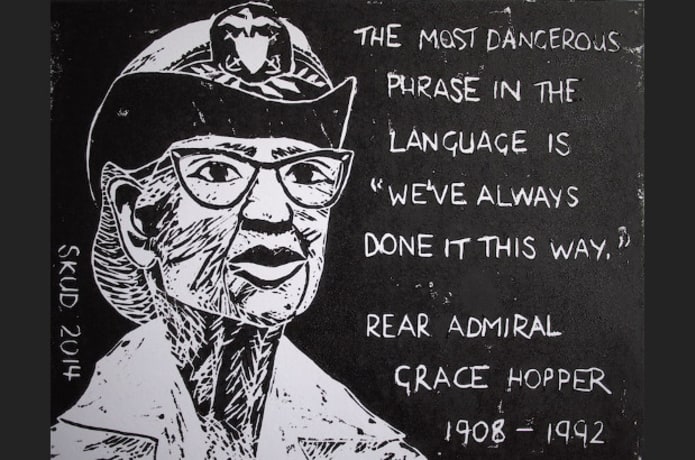 THE MOST DANGEROUS
PHRASE IN THE
LANGUAGE IS
“WE'VE ALWAYS
DONE IT THIS WAY.”
REAR ADMIRAL
GRACE HOPPER
1908 – 1992
SKUD 2014